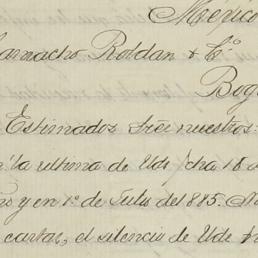 Mexico
Camacho Roldan & Cº
Bog
Estimados Sres nuestros:
la ultima de Uds fcha 18 a
no y en 1º de Julio del 885. N
cartas, el silencio de Uds